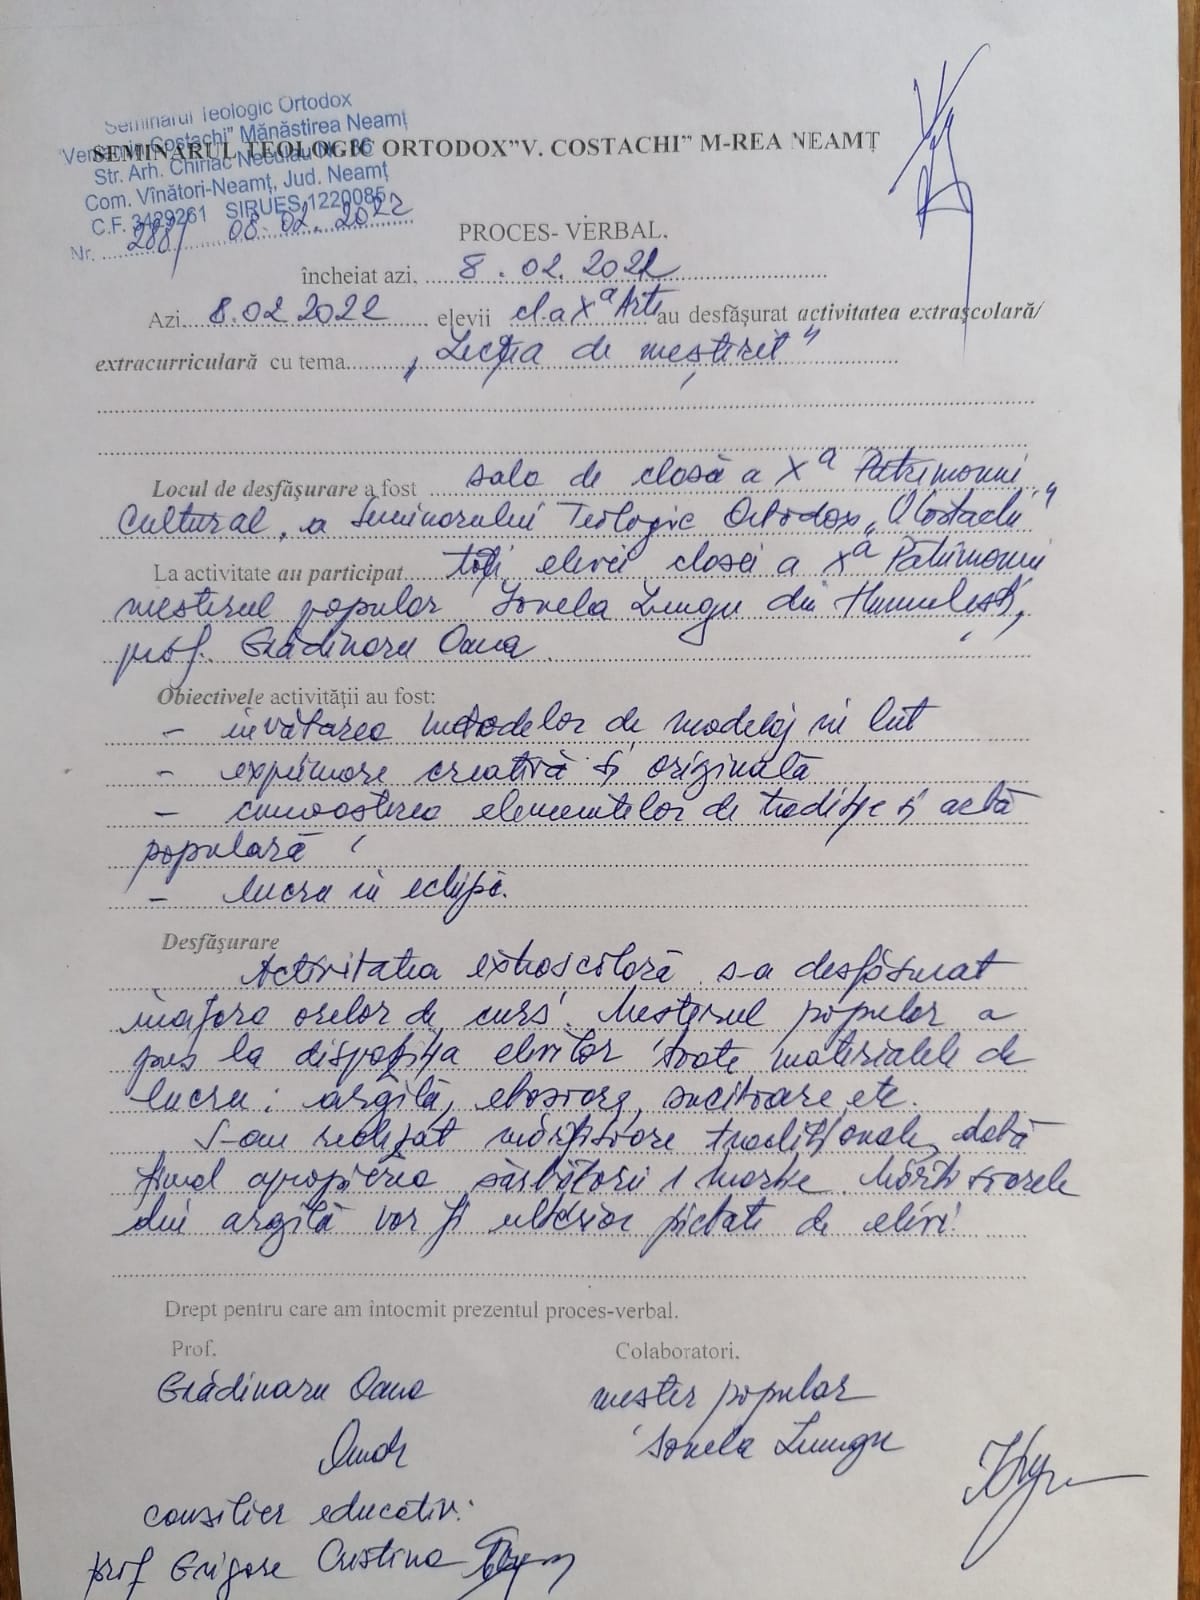 Seminarul Teologic Ortodox
"Veniamin Costachi" Mănăstirea Neamț
SEMINARUL TEOLOGIC ORTODOX"V. COSTACHI" M-REA NEAMȚ
Str. Arh. Chiriac Neculau Nr. 36
Com. Vînători-Neamț, Jud. Neamț
C.F. 3429261 SIRUES 1220085
Nr. 288/ 08.02.2022
PROCES- VERBAL.
încheiat azi, 8.02.2022
Azi 8.02 2022 elevii cl. a Xª Arte au desfășurat activitatea extrașcolară/
extracurriculară cu tema „Lecția de meșterit”
Locul de desfășurare a fost sala de clasă a Xª Patrimoniu
Cultural, a Seminarului Teologic Ortodox „V Costachi”
La activitate au participat toți elevii clasei a Xª Patrimoniu
meșterul popular Ionela Lungu din Humulești,
prof. Grădinaru Oana
Obiectivele activității au fost:
- învățarea metodelor de modelaj în lut
- exprimare creativă și originală
- cunoașterea elementelor de tradiție și artă
populară
- lucru în echipă.
Desfășurare
Activitatea extrașcolară s-a desfășurat
în afara orelor de curs. Meșterul popular a
pus la dispoziția elevilor toate materialele de
lucru: argilă, eboșoare, sucitoare etc.
S-au realizat mărțișoare tradiționale, dată
fiind apropierea sărbătorii 1 Martie. Mărțișoarele
din argilă vor fi ulterior pictate de elevi.
Drept pentru care am întocmit prezentul proces-verbal.
Prof. Colaboratori,
Grădinaru Oana meșter popular
Ionela Lungu
consilier educativ:
prof Grigore Cristina